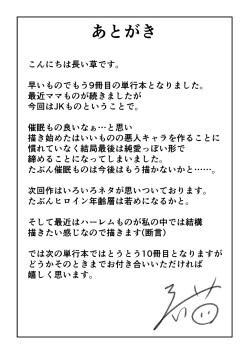 あとがき
こんにちは長い草です。
早いものでもう9冊目の単行本となりました。
最近ママものが続きましたが
今回はJKものということで。
催眠もの良いなぁ…と思い
描き始めたはいいものの悪人キャラを作ることに
慣れていなく結局最後は純愛っぽい形で
締めることになってしまいました。
たぶん催眠ものは今後はもう描かないかと……。
次回作はいろいろネタが思いついております。
たぶんヒロイン年齢層は若めになるかと。
そして最近はハーレムものが私の中では結構
描きたい感じなので描きます(断言)
では次の単行本ではとうとう10冊目となりますが
どうかそのときまでお付き合いいただければ
嬉しく思います。